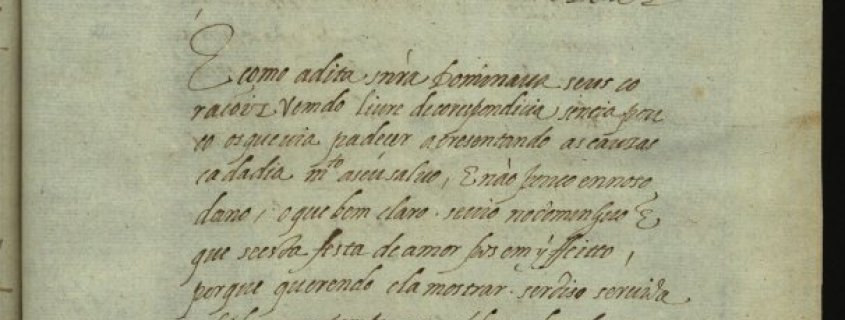 E como a dita snra Dominaua seus co
raiois Vemdo liure decorespondicia sintia pou
co os que uia padecer apresentando as cauzas
cada dia mto aseu saluo, E não pouco en noso
dano, o que bem claro se uio no comenso E
que se esta festa de amor pos em effeitto,
porque querendo ela mostrar serdiso seruida